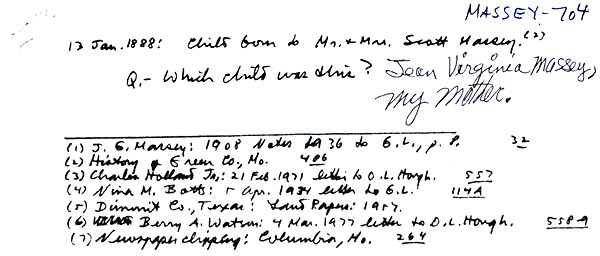 MASSEY-704
13 Jan. 1888: Child born to Mr. & Mrs. Scott Massey. (2)
Q. - Which child was this? Jean Virginia Massey,
my mother.
(1) J. G. Massey: 1908 Notes to G.L., p. 8. 32
(2) History of Green Co., Mo. 486
(3) Charles Holland Jr.: 21 Feb. 1971 letter to O.L. Hough. 557
(4) Nina M. Botts: 5 Apr. 1934 letter to G.L. 114A
(5) Dimmit Co., Texas: Land Papers: 1957.
(6) Berry A. Watson: 4 Mar. 1977 letter to O.L. Hough. 558-A
(7) Newspaper clipping: Columbia, Mo. 264